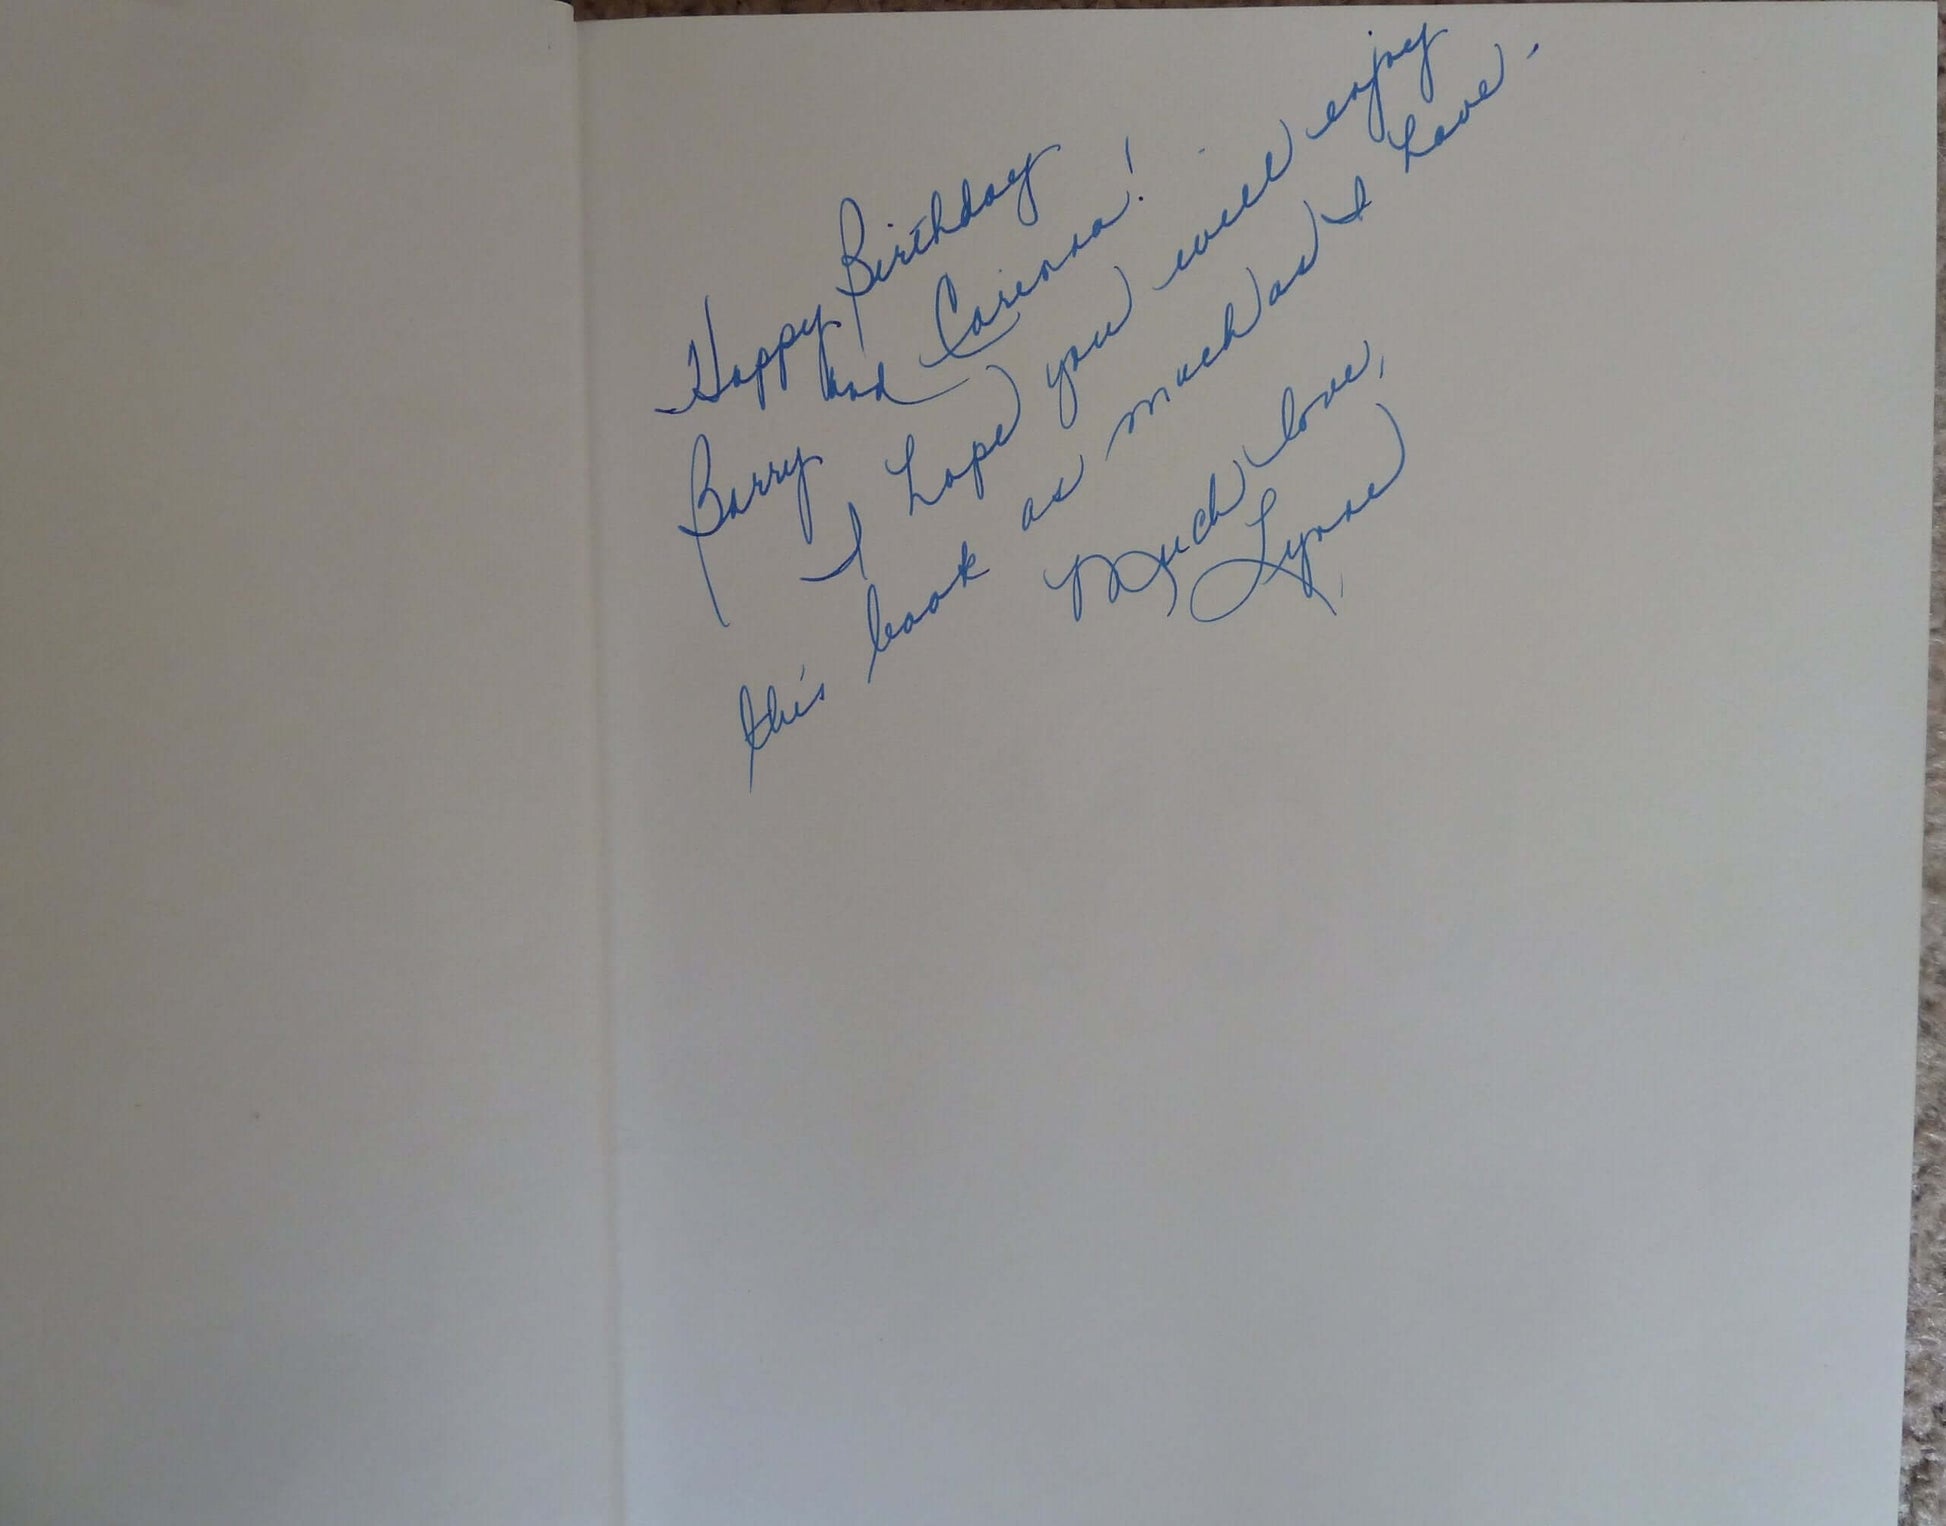 Happy Birthday
Barry and Carenna!
I hope you will enjoy
this book as much as I have.
Much love,
Lynne